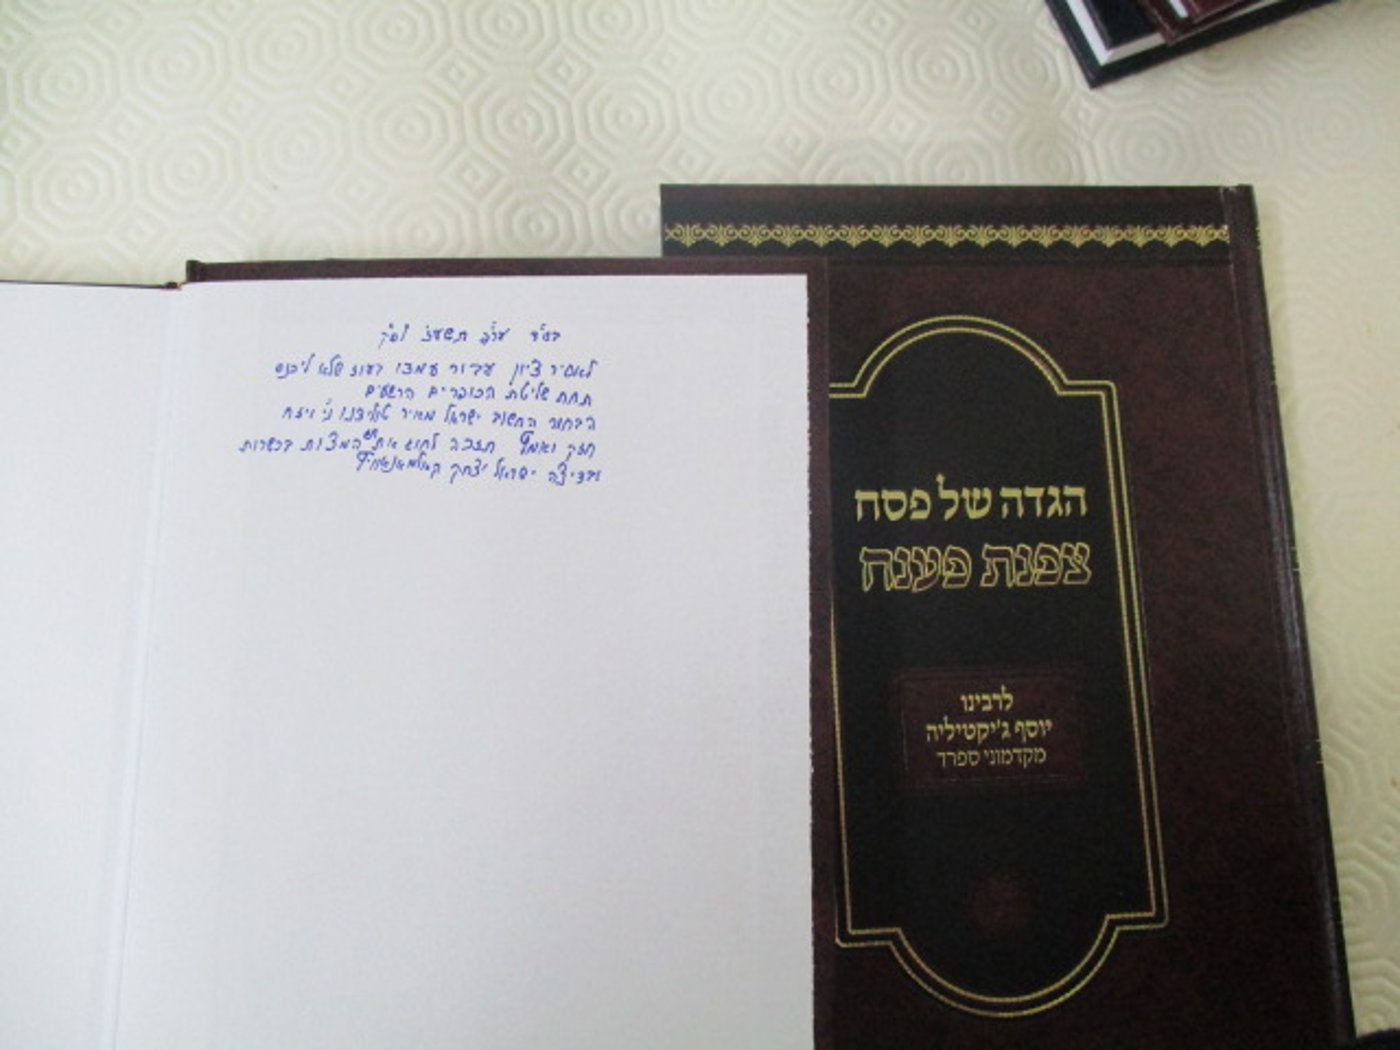 בס"ד ער"פ תשע"ז לפ"ק
לאסיר ציון עבור עמדו בעוז שלא ליכנס
תחת שליטת הכופרים הרשעים
הבחור החשוב ישראל מאיר נ"י
חזק ואמץ תזכה לחוג את חג המצות בכשרות
ישראל יצחק
הגדה של פסח
צפנת פענח
לרבינו
יוסף ג'יקטיליה
מקדמוני ספרד